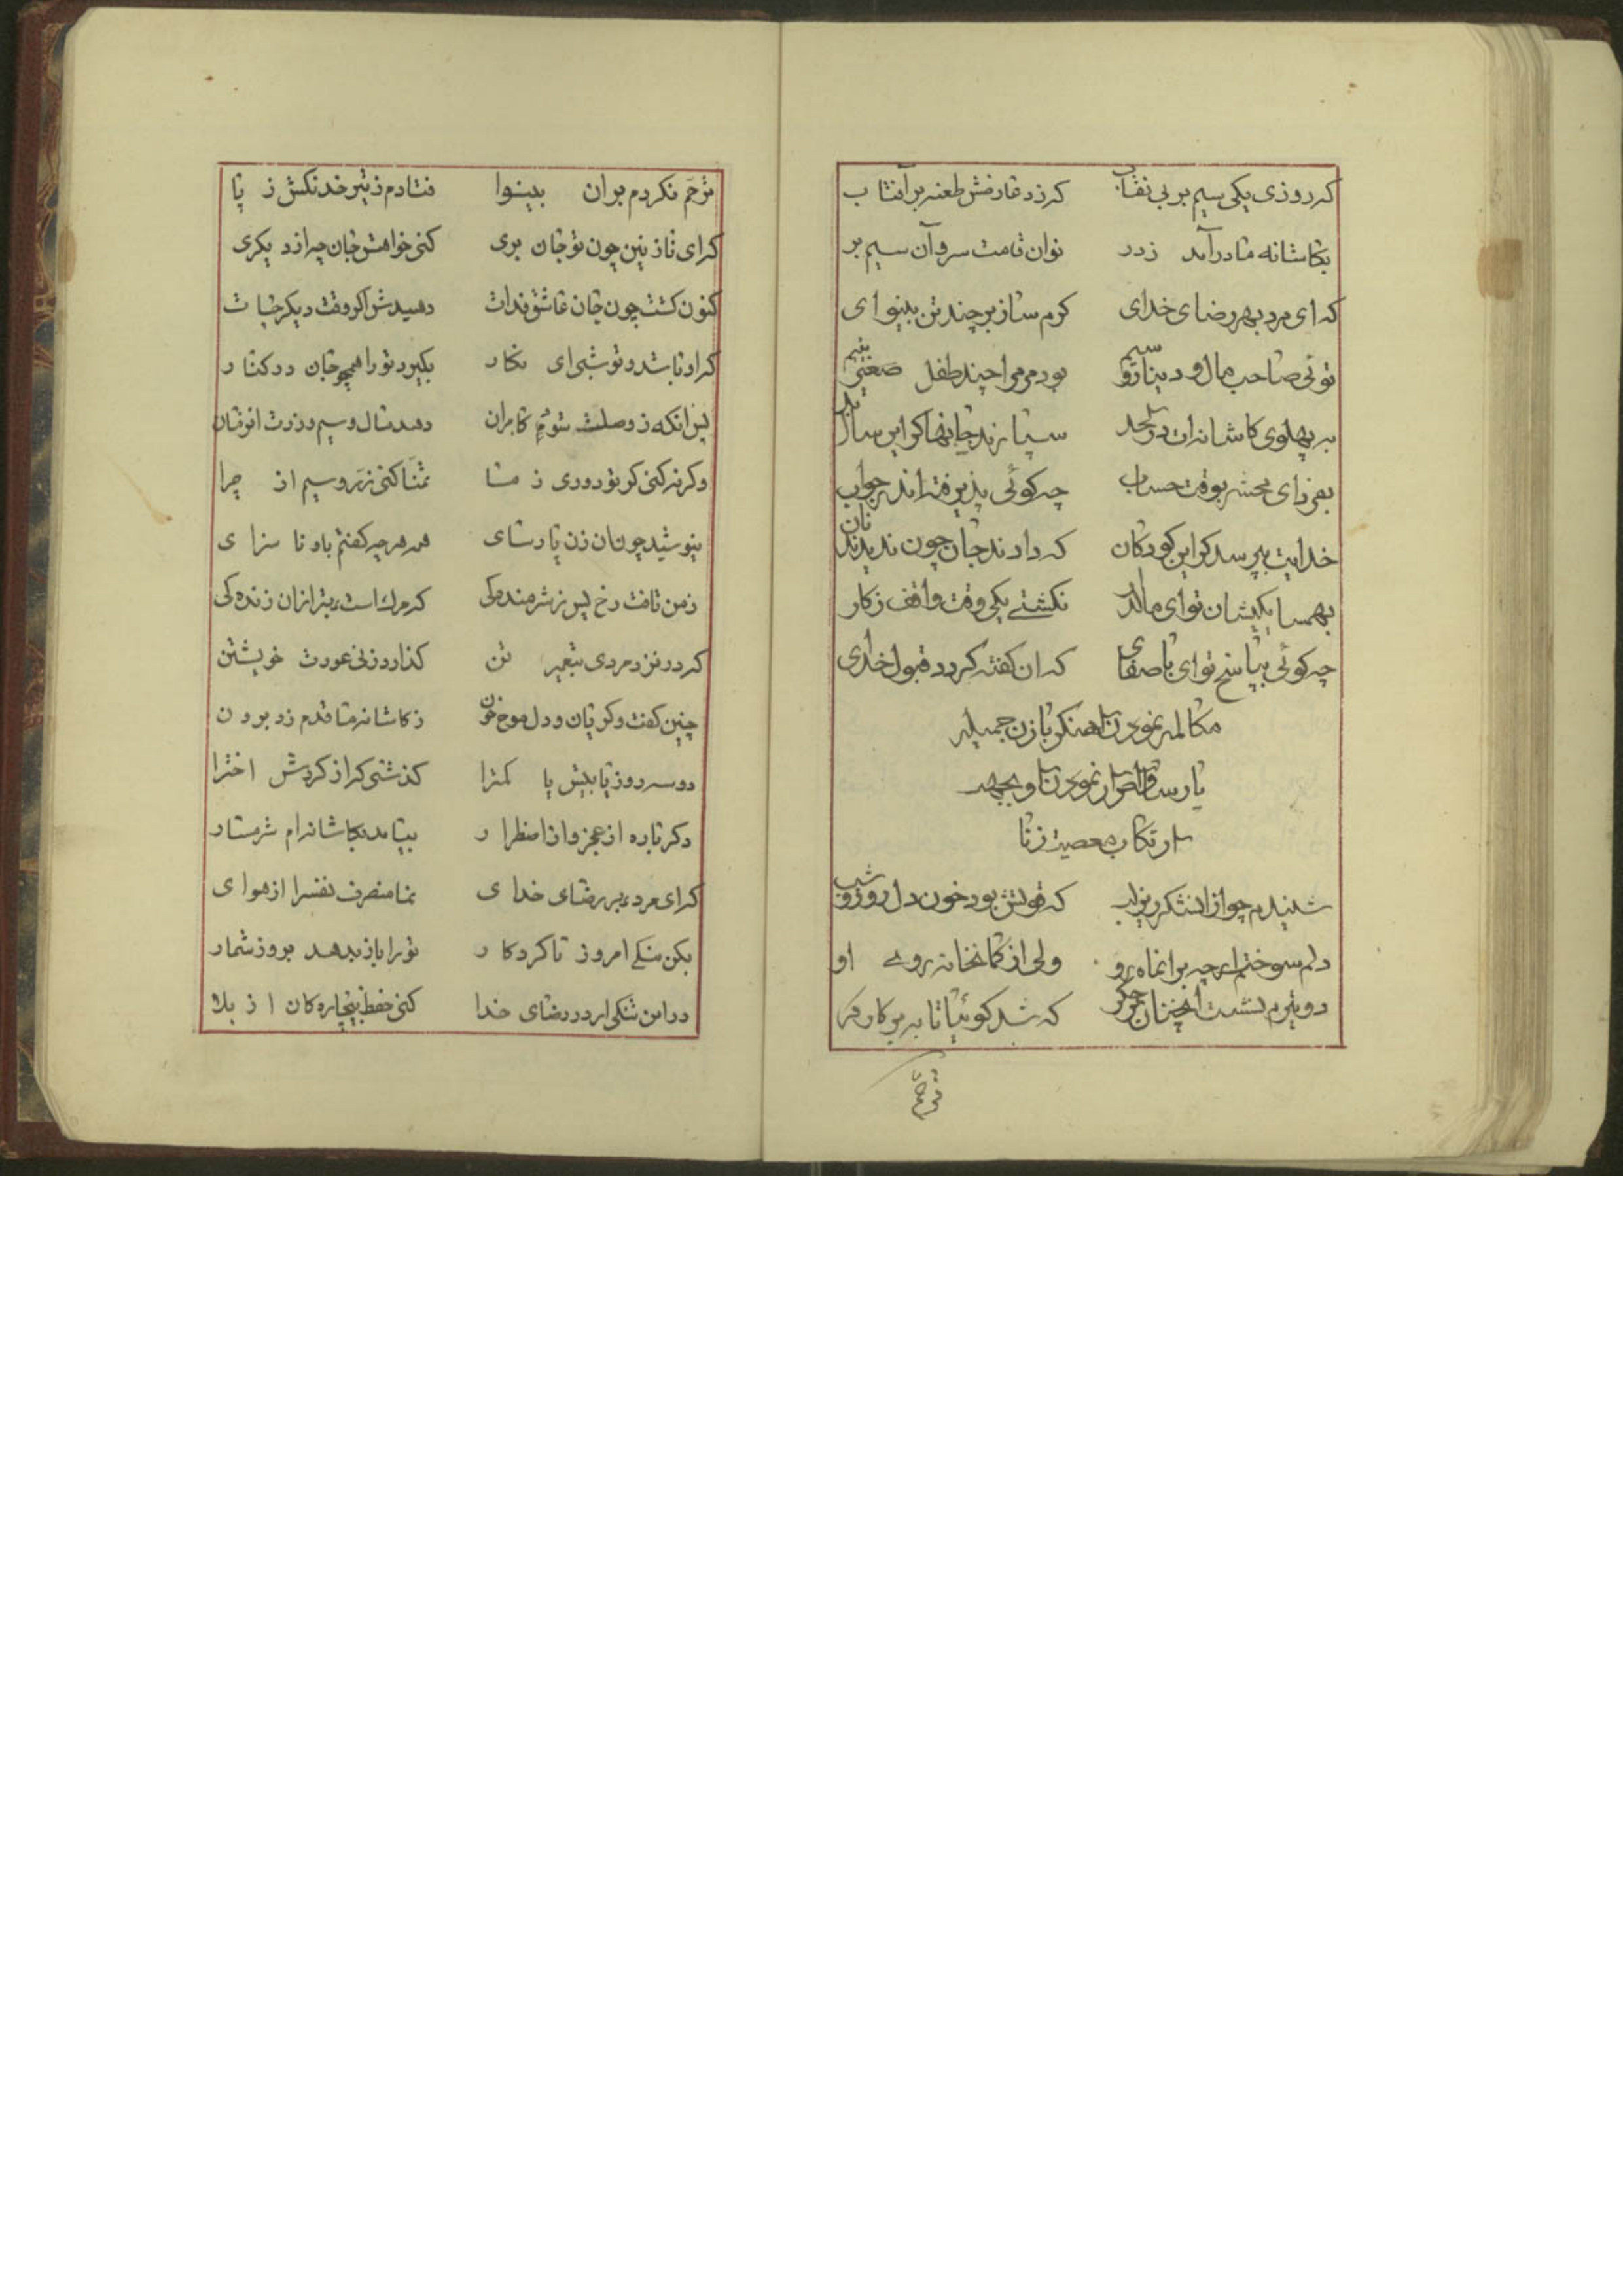 که روزی یکی سیم بر بی نقاب کزد عارضش طعنه بر آفتاب
بکاشانه ما درآمد ز در نوان قامت سرو آن سیم بر
که ای مرد بهر رضای خدای کرم ساز بر چند تن بینوای
توئی صاحب مال و دینار و سیم بود مر مرا چند طفل صغیر یتیم
به پهلوی کاشانه ات در سپارند جانها کر این
بفردای محشر بوقت حساب چه کوئی پذیرفته اندر جواب
خدایت بپرسد کر این کودکان که دادند جان چون ندیدند نان
بهمسایکیشان تو ای مالدار نکشتی یکی وقت واقف ز کار
چه کوئی بپاسخ تو ای با صفای که ان کفته کردد قبول خدای
مکالمه نمودن اهنکر با زن جمیله
پارسا و نمودن او بجهه
ارتکاب معصیت زنا
شنیدم چو از ان شکر ریز لب که قوتش بود خون دل روز و شب
دلم سوخت ار چه بر انماه رو ولی از کمانخانه روی او
دو تیرم نشست انچنان بر جکر که شد کوئیا تا به پر کارکر
ترحم
ترحم نکردم بر ان بینوا فتادم ز تیر خدنکش ز پا
که ای نازنین چون تو جان بری کنی خواهش جان چه از دیکری
کنون کشت چون جان عاشق فدات دهیدش اکر وقت دیکر حیات
کر او باشد و تو شبی ای نکار بکیرد تو را همچو جان در کنار
پس انکه ز وصلت شوم کامران دهد مال و سیم و زرت
و کر نه کنی کر تو دوری ز ما تمنا کنی زر و سیم از چرا
بنوشید چون ان زن پارسای همه هر چه کفتم باو نا سزای
ز من تافت رخ پس ز شرمنده کی که مرک است بهتر از ان زنده کی
که در نزد مردی بتغییر تن کذارد زنی عورت خویشتن
چنین کفت و کریان و دل موج خون ز کاشانه ما قدم زد برون
دو سه روز یا بیش یا کمترا کذشتی که از کردش اخترا
دکر باره از عجز و از اضطرار بیامد بکاشانه ام شرمسار
که ای مرد بر رضای خدای نما منصرف نفس را از هوای
بکن نیکی امروز تا کردکار تو را باز بدهد بروز شمار
در این تنکی ار در رضای خدا کنی حفظ بیچاره کان از بلا